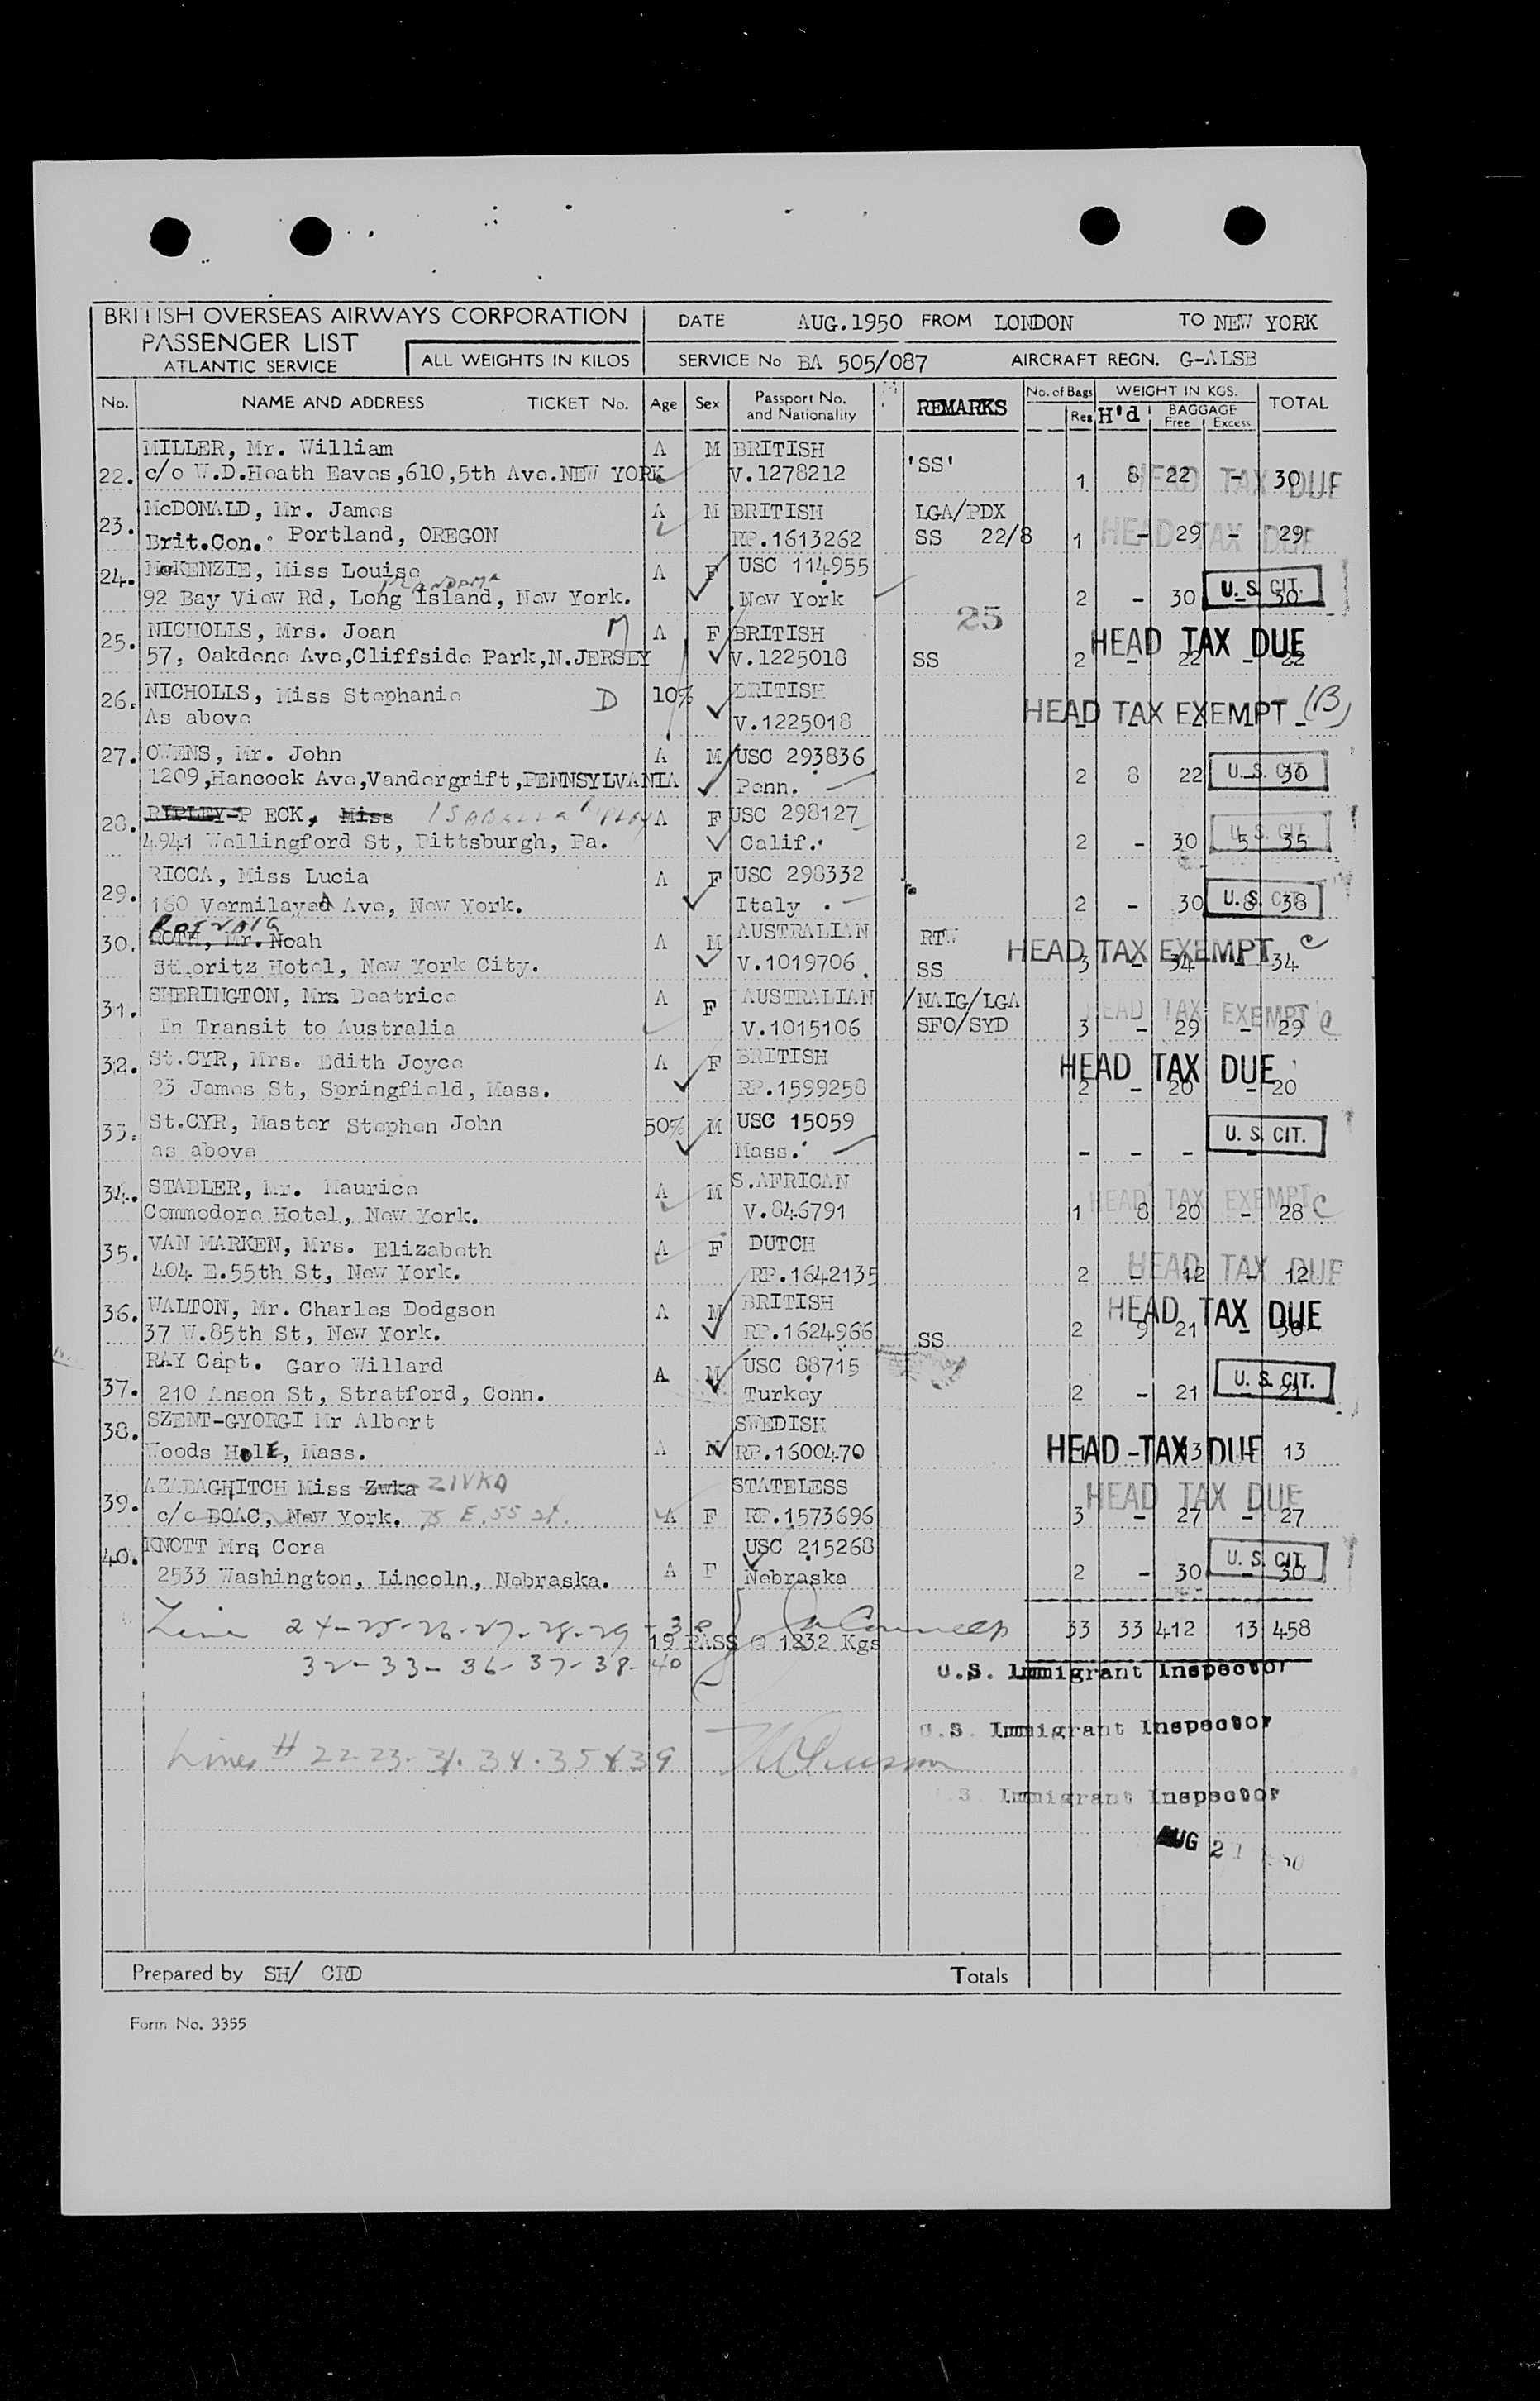 BRITISH OVERSEAS AIRWAYS CORPORATION
PASSENGER LIST
ATLANTIC SERVICE
ALL WEIGHTS IN KILOS
DATE AUG.1950 FROM LONDON TO NEW YORK
SERVICE No BA 505/087 AIRCRAFT REGN. G-ALSB
No. NAME AND ADDRESS TICKET No. Age Sex Passport No. and Nationality REMARKS No. of Bags Reg H'd WEIGHT IN KGS. BAGGAGE Free Excess TOTAL
MILLER, Mr. William A M BRITISH
22. c/o W.D.Heath Eaves,610,5th Ave.NEW YORK V.1278212 'SS' 1 8 22 - 30 HEAD TAX DUE
McDONALD, Mr. James A M BRITISH LGA/PDX
23. Brit.Con. Portland, OREGON RP.1613262 SS 22/8 1 - 29 - 29 HEAD TAX DUE
24. McKENZIE, Miss Louise A F USC 114955
92 Bay View Rd, Long Island, New York. New York 2 - 30 - 30 U.S. CIT.
25
25. NICHOLLS, Mrs. Joan M A F BRITISH HEAD TAX DUE
57, Oakdene Ave,Cliffside Park,N.JERSEY V.1225018 SS 2 - 22 - 22
26. NICHOLLS, Miss Stephanie D 10% BRITISH
As above V.1225018 HEAD TAX EXEMPT (B)
27. OWENS, Mr. John A M USC 293836
1209,Hancock Ave,Vandergrift,PENNSYLVANIA Penn. 2 8 22 - 30 U.S. CIT.
28. RIPLEY-P ECK, Miss ISABELLA RIPLEY A F USC 298127
4941 Wellingford St, Pittsburgh, Pa. Calif. 2 - 30 5 35 U.S. CIT.
29. RICCA, Miss Lucia A F USC 298332
160 Vermilayed Ave, New York. Italy 2 - 30 8 38 U.S. CIT.
30. ROTH, Mr. Noah A M AUSTRALIAN RTW HEAD TAX EXEMPT c
StMoritz Hotel, New York City. V.1019706 SS 3 - 34 - 34
31. SHERINGTON, Mrs Beatrice A F AUSTRALIAN /NAIG/LGA HEAD TAX EXEMPT c
In Transit to Australia V.1015106 SFO/SYD 3 - 29 - 29
32. St.CYR, Mrs. Edith Joyce A F BRITISH HEAD TAX DUE
23 James St, Springfield, Mass. RP.1599258 2 - 20 - 20
33. St.CYR, Master Stephen John 50% M USC 15059 U.S. CIT.
as above Mass. - - - -
34. STADLER, Mr. Maurice A M S.AFRICAN HEAD TAX EXEMPT c
Commodore Hotel, New York. V.846791 1 8 20 - 28
35. VAN MARKEN, Mrs. Elizabeth A F DUTCH
404 E.55th St, New York. RP.1642135 2 - 12 - 12 HEAD TAX DUE
36. WALTON, Mr. Charles Dodgson A M BRITISH HEAD TAX DUE
37 W.85th St, New York. RP.1624966 SS 2 9 21 - 30
RAY Capt. Garo Willard A M USC 88715
37. 210 Anson St, Stratford, Conn. Turkey 2 - 21 - 21 U.S. CIT.
38. SZENT-GYORGI Mr Albert SWEDISH
Woods HolE, Mass. A M RP.1600470 HEAD TAX DUE 1 - 13 - 13
39. AZABAGHITCH Miss Zwka ZIVKA STATELESS HEAD TAX DUE
c/o BOAC, New York. 75 E. 55 St. A F RP.1573696 3 - 27 - 27
40. KNOTT Mrs Cora USC 215268
2533 Washington, Lincoln, Nebraska. A F Nebraska 2 - 30 - 30 U.S. CIT.
Line 24-25-26-27-28-29-30 33 33 412 13 458
19 PASS @ 1232 Kgs
32-33-36-37-38-40
U.S. Immigrant Inspector
U.S. Immigrant Inspector
Lines # 22-23-31-34-35 & 39
U.S. Immigrant Inspector
AUG 21 1950
Prepared by SH/ CRD Totals
Form No. 3355